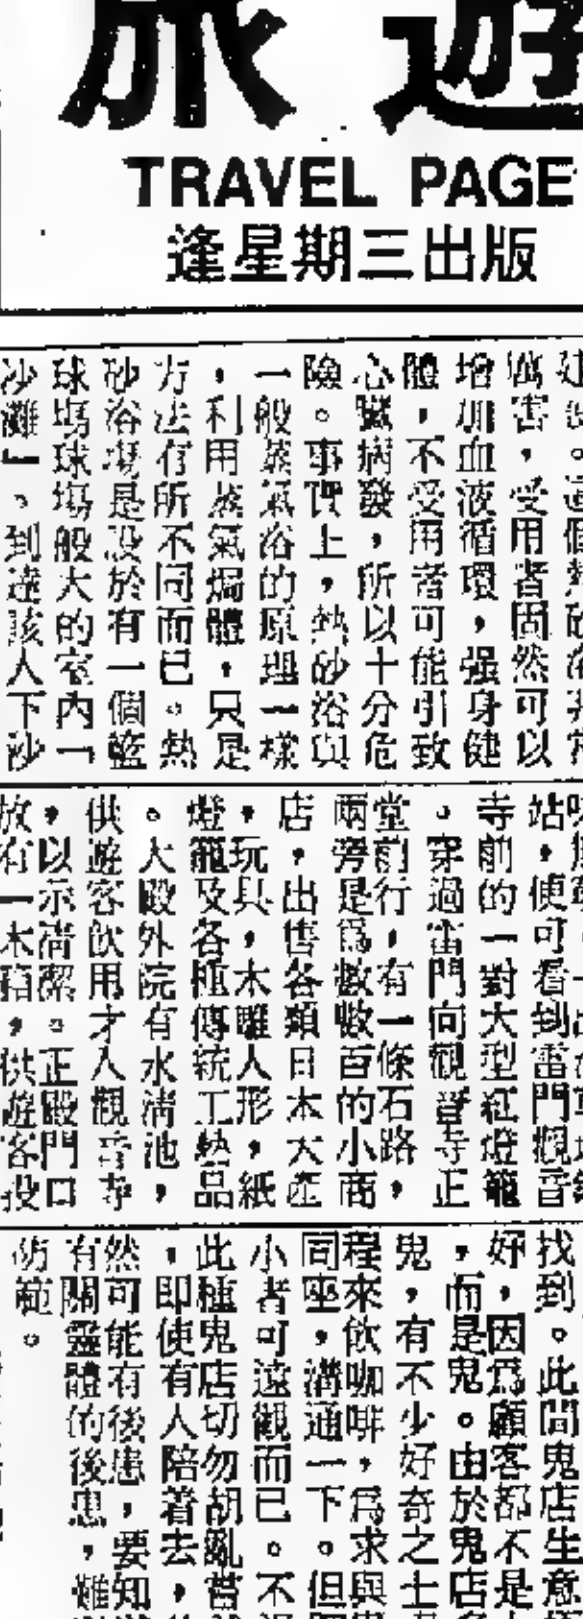 旅遊
TRAVEL PAGE
逢星期三出版
害，受用者固然可以
增加血液循環，强身健
體，不受用者可能引致
心臟病發，所以十分危
險。事實上，熱砂浴與
一般蒸氣浴的原理一樣
，利用蒸氣焗體，只是
方法有所不同而已。熱
砂浴場是設於有一個籃
球場球場般大的室內「
沙灘」。到達該人下沙
站，便可看到雷門觀音
寺前的一對大型紅燈籠
。穿過雷門向觀音寺正
堂前行，有一條石路，
兩旁是爲數數百的小商
店，出售各類日本大産
，玩具，木雕人形，紙
燈籠及各種傳統工藝品
。大殿外院有水清池，
供遊客飲用才入觀音寺
，以示清潔。正殿門口
放有一木箱，供遊客投
找到。此間鬼店生意
好，因爲顧客都不是
，而是鬼。由於鬼店
鬼，有不少好奇之士
程來飲咖啡，爲求與
同座，溝通一下。但
小者可遠觀而已。不
此種鬼店切勿胡亂嘗
，即使有人陪着去，
然可能有後患，要知
有關靈體的後患，難
防範。